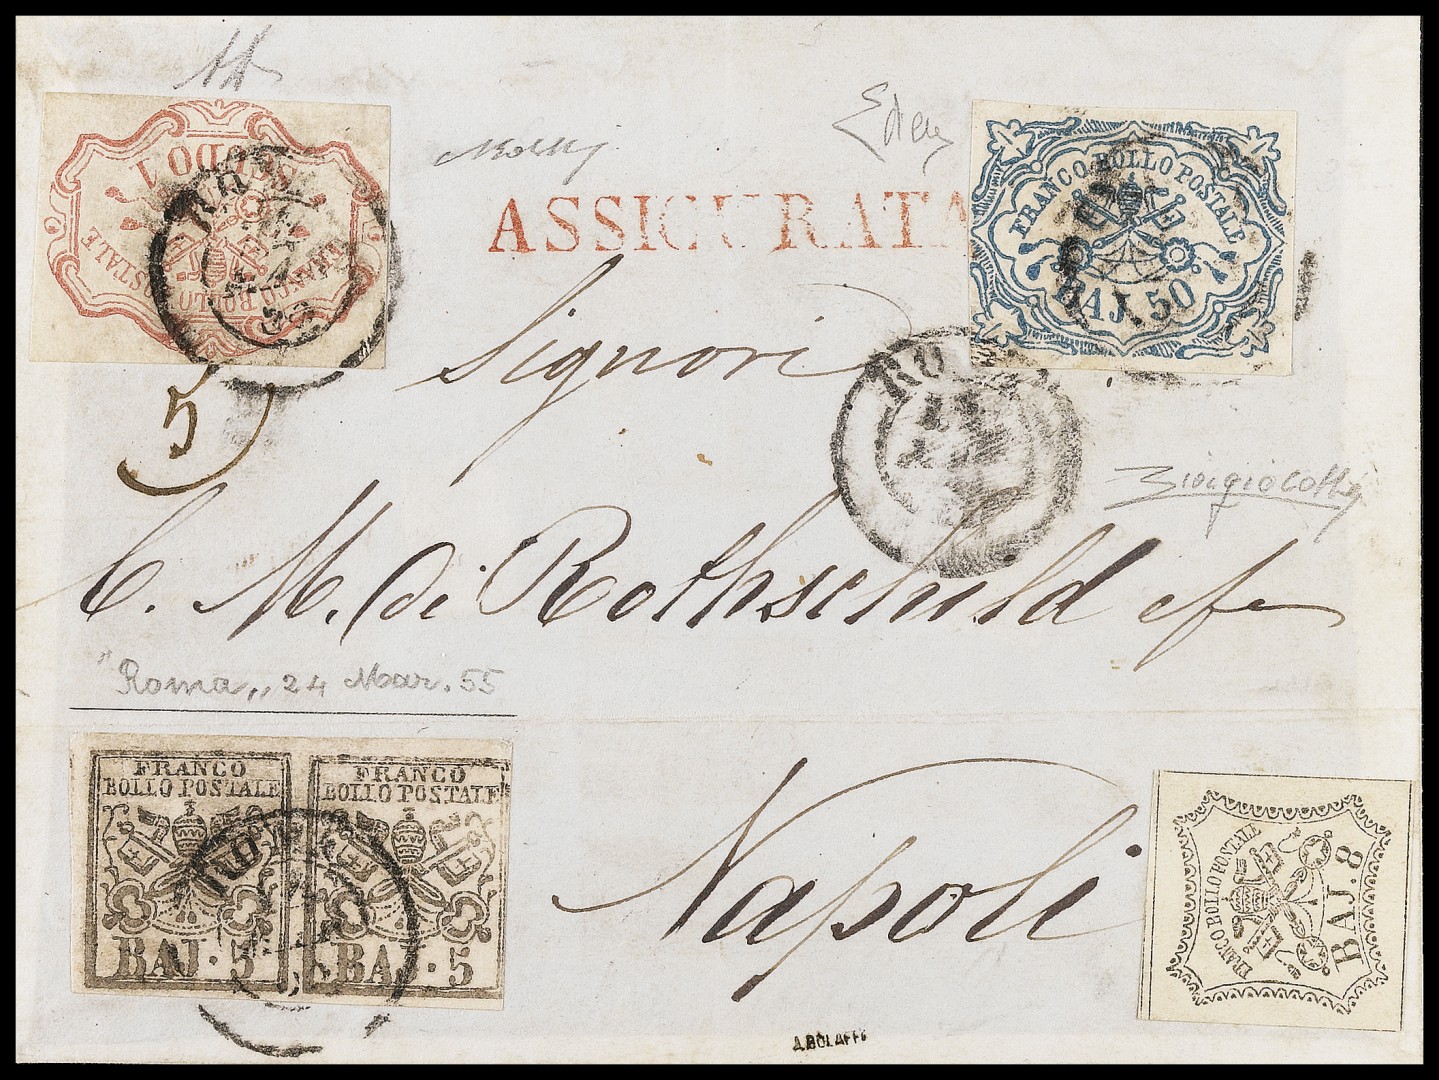 FRANCO BOLLO POSTALE
SCUDO 1
ASSIGURATA
FRANCO BOLLO POSTALE
BAJ. 50
5
Signori
ROMA
Giorgio Colla
C. M. de Rothschild e fe
"Roma,, 24 Mar. 55
FRANCO
BOLLO POSTALE
BAJ. 5
FRANCO
BOLLO POSTALE
BAJ. 5
Napoli
FRANCO BOLLO POSTALE
BAJ. 8
A. BOLAFFI